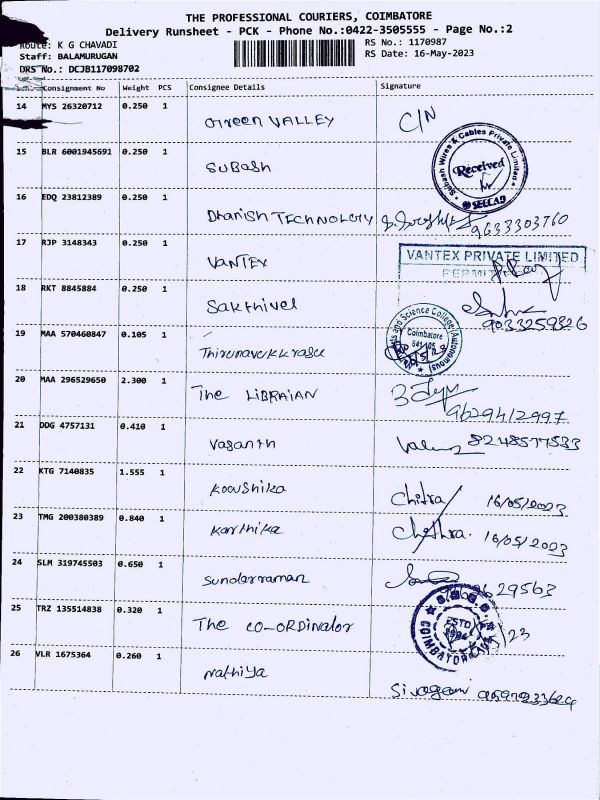 THE PROFESSIONAL COURIERS, COIMBATORE
Delivery Runsheet - PCK - Phone No.:0422-3505555 - Page No.:2
Route: K G CHAVADI
RS No.: 1170987
Staff: BALAMURUGAN
RS Date: 16-May-2023
DRS No.: DCJB117098702
Consignment No Weight PCS Consignee Details Signature
14 MYS 26320712 0.250 1 Green VALLEY C/N
15 BLR 6001945691 0.250 1 SUBASH
Subash Wires & Cables Private Limited
Received
16 EDQ 23812389 0.250 1 Dhanish TECHNOLOGY 9633303760
17 RJP 3148343 0.250 1 VANTEX
VANTEX PRIVATE LIMITED
18 RKT 8845884 0.250 1 Sakthivel
9033259826
19 MAA 570460847 0.105 1 Thirunavukkrasu
and Science College (Autonomous)
Coimbatore
20 MAA 296529650 2.300 1 The LIBRAIAN
9629412997
21 DDG 4757131 0.410 1 Vasanth 8248577533
22 KTG 7140835 1.555 1 Koushika Chitra 16/05/2023
23 TMG 200380389 0.840 1 Karthika Chethra. 16/05/2023
24 SLM 319745503 0.650 1 Sundarraman
29563
25 TRZ 135514838 0.320 1 The CO-ORDINATOR
ESTD
COIMBATORE
26 VLR 1675364 0.260 1 Nathiya
Sivagami